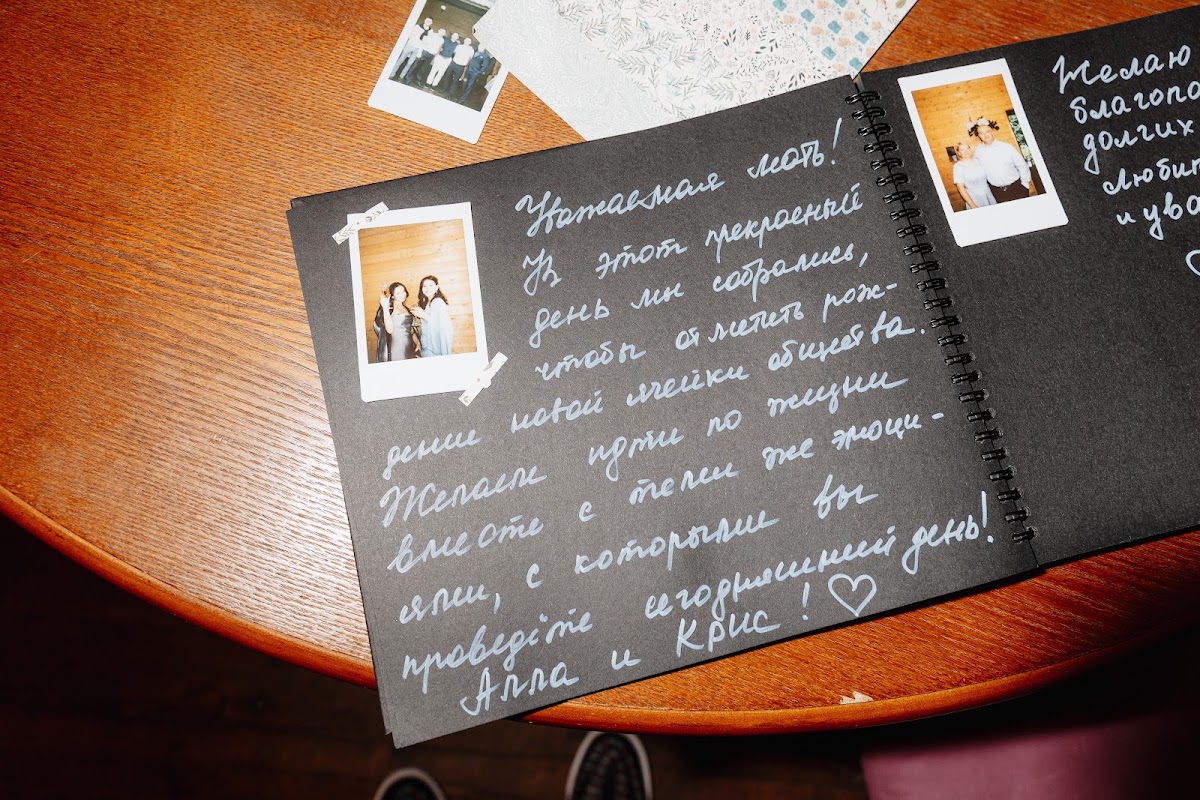 Уважаемая мать!
В этот прекрасный
день мы собрались,
чтобы отметить рож-
дение новой ячейки общества.
Желаем идти по жизни
вместе с теми же эмоци-
ями, с которыми вы
проведёте сегодняшний день!
Алла и Крис! ♡
Желаю
долгих